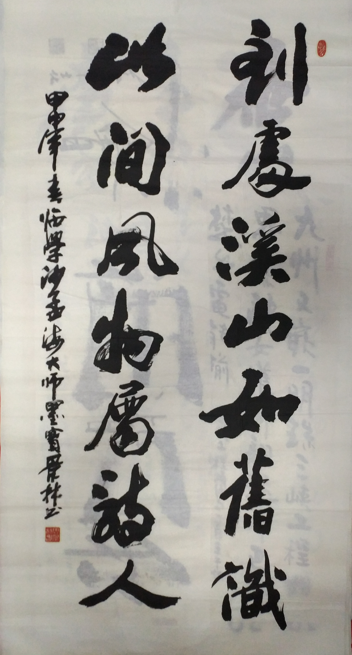 到處溪山如舊識
此間風物屬詩人
甲申年春临學沙孟海大师墨寶